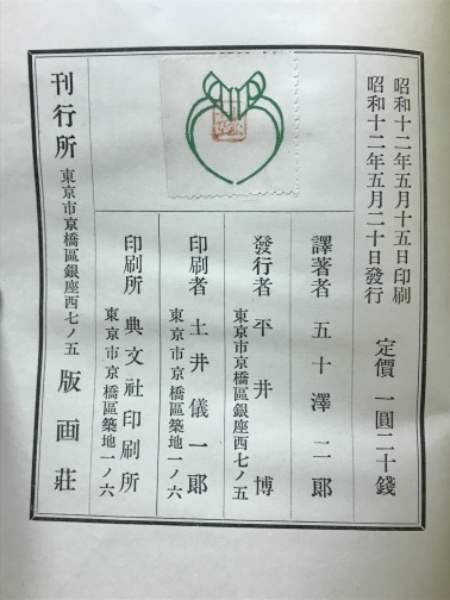 昭和十二年五月十五日印刷
昭和十二年五月二十日發行
定價 一圓二十錢
譯著者 五十澤二郞
發行者 平井博
東京市京橋區銀座西七ノ五
印刷者 土井儀一郞
東京市京橋區築地一ノ六
印刷所 典文社印刷所
東京市京橋區築地一ノ六
刊行所 東京市京橋區銀座西七ノ五 版画莊